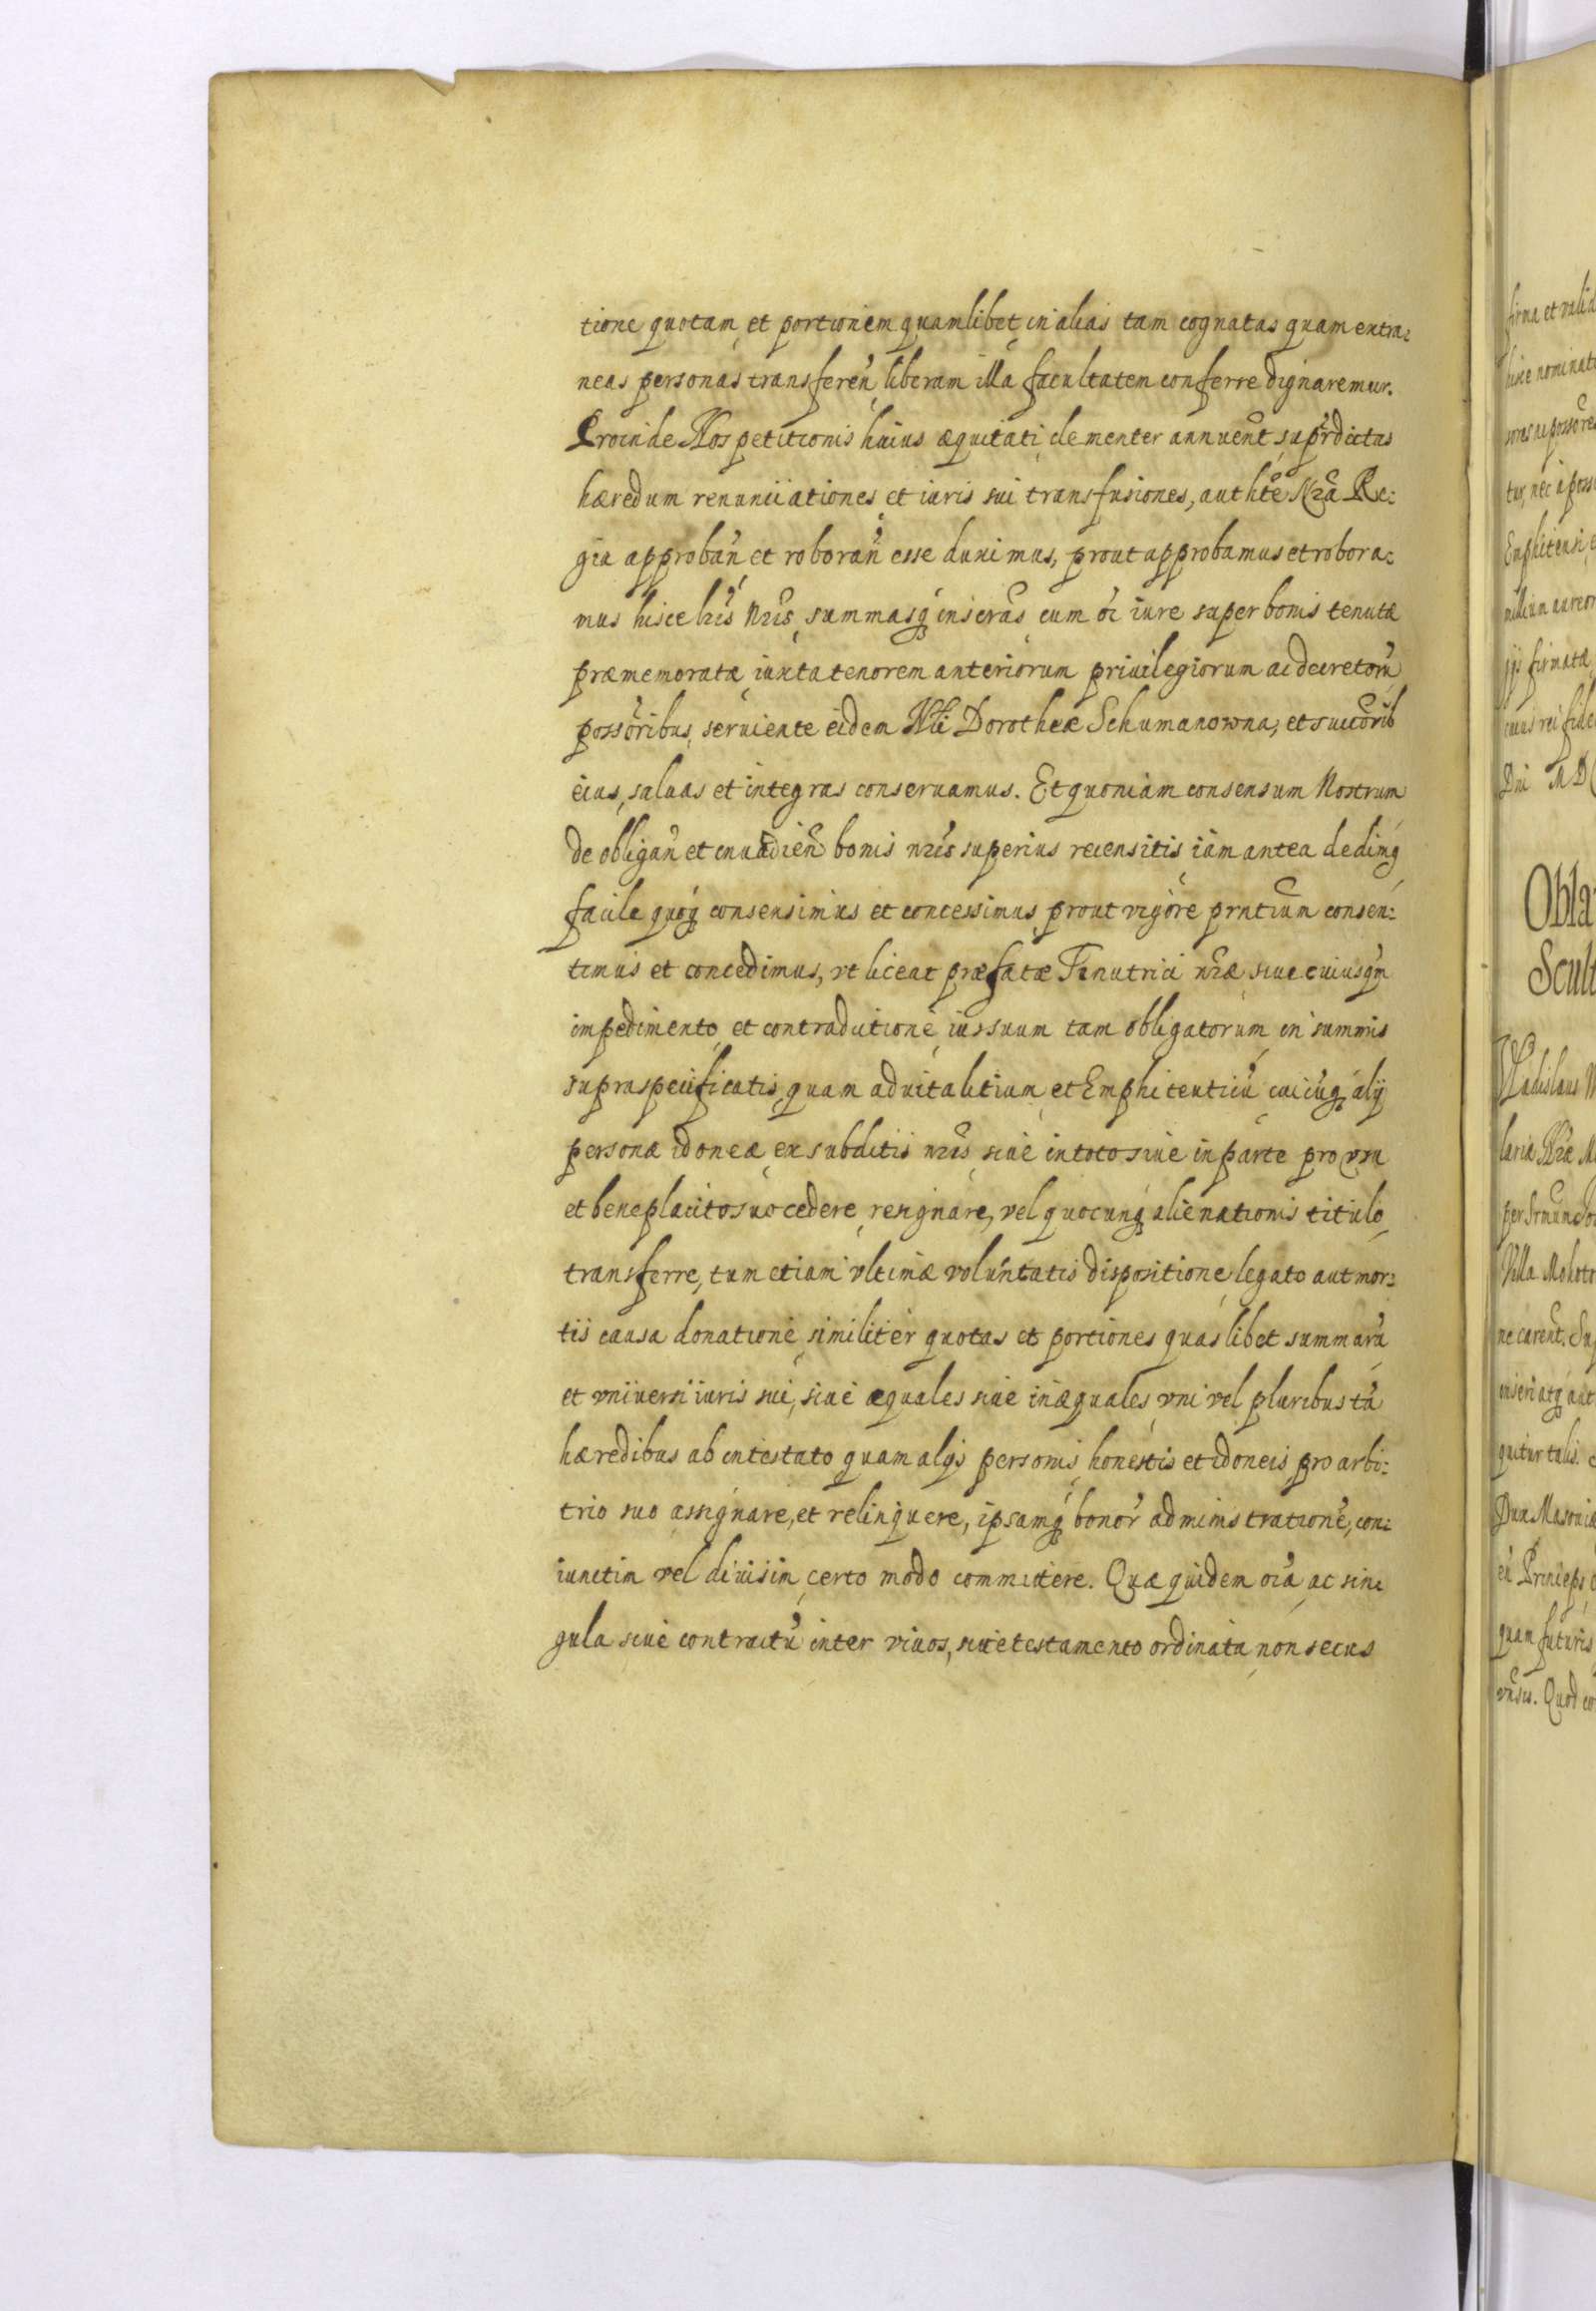 tione quotam et portionem quamlibet in alias tam cognatas quam extra-
neas personas transferen̄ liberam illa facultatem conferre dignaremur.
Proinde Nos petitionis huius æquitati clementer annuent̄, supr̄dictas
hæredum renuntiationes et iuris sui transfusiones, authtē Nr̄a Re-
gia approban̄ et roboran̄ esse duximus, prout approbamus et robora-
mus hisce lr̄is Nr̄is, summasq́ inscr̄as cum oī iure super bonis tenutæ
præmemoratæ iuxta tenorem anteriorum priuilegiorum ac decretorū
possōribus, seruiente eidem Nl̄i Dorotheæ Schumanowna, et succōrib
eius, saluas et integras conseruamus. Et quoniam consensum Nostrum
de obligan̄ et inuadien̄ bonis nr̄is superius recensitis iam antea dedimq́
facile quoq́ consensimus et concessimus prout vigore pr̄ntium consen-
timus et concedimus, vt liceat præfatæ Tenutrici nr̄æ sine cuiusq̄m
impedimento et contradictione ius suum tam obligatorum in summis
supraspecificatis quam aduitalitium et Emphiteuticū cuicūq́ alÿ
personæ idoneæ ex subditis nr̄is siue in toto siue in parte pro vsu
et beneplacito suo cedere resignare, vel quocunq́ alienationis titulo
transferre, tum etiam vltimæ voluntatis dispositione legato aut mor-
tis causa donatione similiter quotas et portiones quaslibet summarū
et vniuersi iuris sui, siue æquales siue inæquales vni vel pluribus tā
hæredibus ab intestato quam alÿs personis honestis et idoneis pro arbi-
trio suo assignare, et relinquere, ipsamq́ bonor̄ administratione, con-
iunctim vel diuisim certo modo committere. Quæ quidem oīa ac sin-
gula siue contractū inter viuos, siue testamento ordinata non secus
firma et valid
hisce nominat
Obla
Scult
Vladislaus